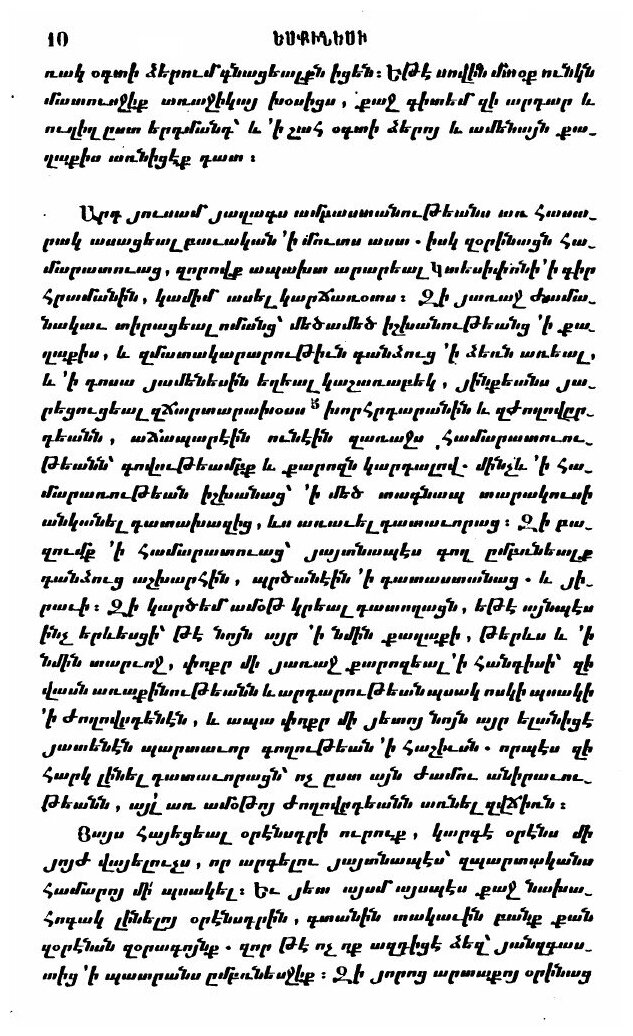 10 ԵՍՔԻՆԵՍԻ
ռակ օգտի ձերում գնացեալքն իցեն։ Եթէ սովին մտօք ունկն
մատուռջիք առաջիկայ խօսիցս, քաջ գիտեմ զի արդար և
ուղիղ ըստ երդմանդ՝ և ՚ի շահ օգտի ձերոյ և ամենայն քա֊
ղաքիս առնիցէք դատ։
Արդ յուսամ յաղագս ամբաստանութեանս առ հասա֊
րակ ասացեալ բաւական ՚ի մուտս աստ. իսկ զօրինացն հա֊
մարատուաց, զորովք ապախտ արարեալ Կտեսիփոնի ՚ի գիր
հրամանին, կամիմ ասել կարճառօտս։ Զի յառաջ ժամա֊
նակաւ տիրացեալ ոմանց՝ մեծամեծ իշխանութեանց ՚ի քա֊
ղաքիս, և զմատակարարութիւն գանձուց ՚ի ձեռն առեալ,
և ՚ի դոսա յամենեսին եղեալ կաշառաբեկ, յինքեանս յա֊
րեցուցեալ զճարտարախօսս 5 խորհրդարանին և զժողովըր֊
դեանն, աճապարէին ունէին զառաջս համարատուու֊
թեանն՝ գովութեամբք և քարոզն կարդալով. մինչև ՚ի հա֊
մարառութեան իշխանաց՝ ՚ի մեծ տագնապ տարակուսի
անկանել դատախազից, ևս առաւել դատաւորաց։ Զի բա֊
զումք ՚ի համարատուաց՝ յայտնապէս գող ըմբռնեալք
գանձուց աշխարհին, պրծանէին ՚ի դատաստանաց. և յի֊
րաւի։ Զի կարծեմ ամօթ կրեալ դատողացն, եթէ այնպէս
ինչ երևեսցի՝ թէ նոյն այր ՚ի նմին քաղաքի, թերևս և ՚ի
նմին տարւոջ, փոքր մի յառաջ քարոզեալ ՚ի հանդիսի՝ զի
վասն առաքինութեանն և արդարութեան պսակ ոսկի պսակի
՚ի ժողովրդենէն, և ապա փոքր մի յետոյ նոյն այր ելանիցէ
յատենէն պարտաւոր գողութեան ՚ի հաշիւն. որպէս զի
հարկ լինել դատաւորացն՝ ոչ ըստ այն ժամու անիրաւու֊
թեանն, այլ առ ամօթոյ ժողովրդեանն առնել զվճիռն։
Յայս հայեցեալ օրէնսդրի ուրուք, կարգէ օրէնս մի
յոյժ վայելուչս, որ արգելու յայտնապէս՝ զպարտականս
համարոյ մի՛ պսակել։ Եւ յետ այսմ այսպէս քաջ նախա֊
հոգակ լինելոյ օրէնսդրին, գտանին տակաւին բանք քան
զօրէնսն զօրագոյնք. զոր թէ ոչ ոք ազդիցէ ձեզ՝ յանզգաս֊
տից ՚ի պատրանս ըմբռնեսջիք։ Զի յորոց արտաքոյ օրինաց